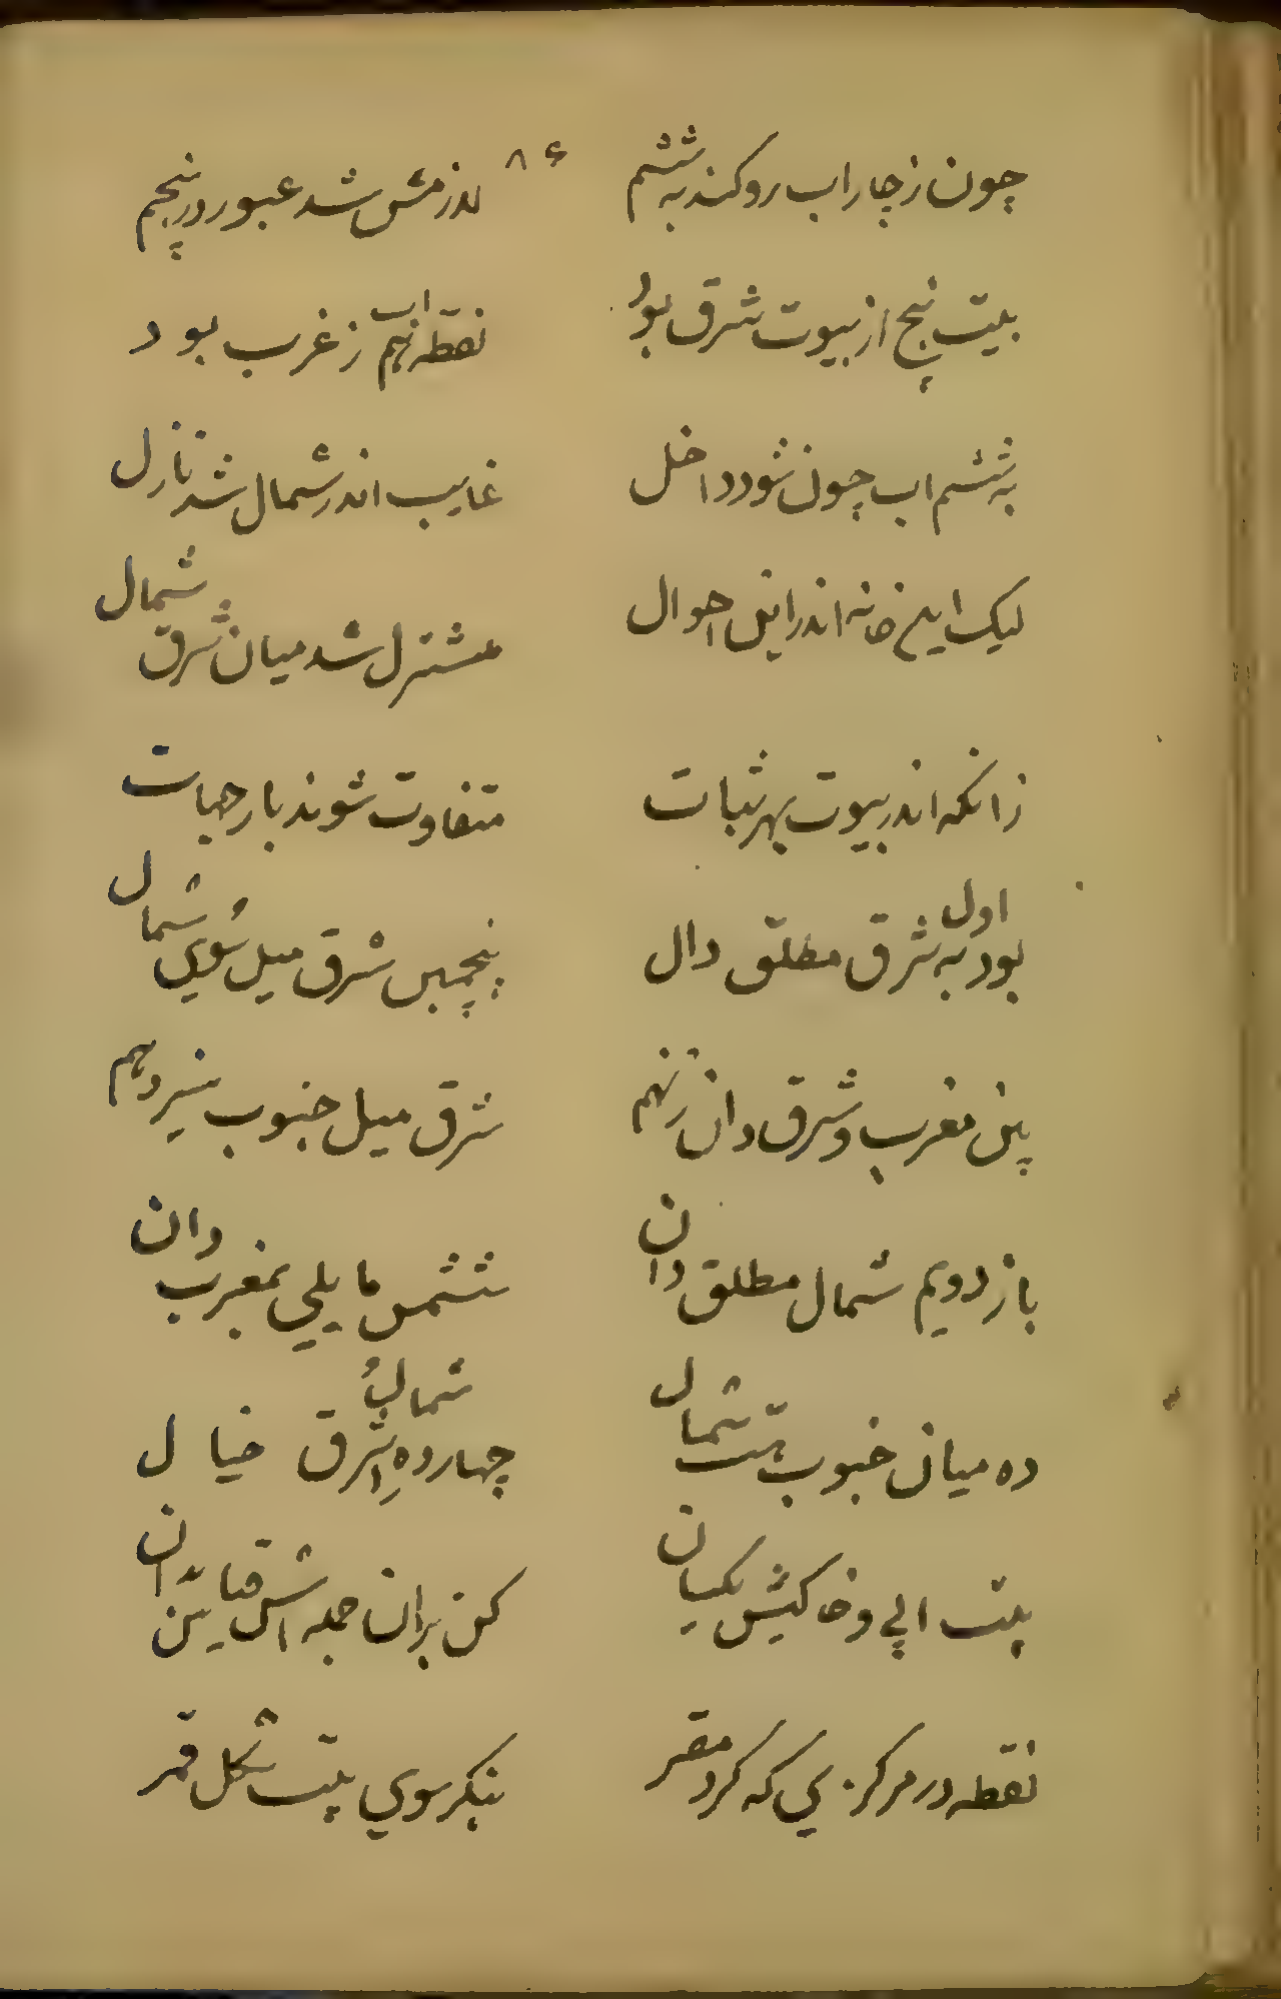 ۸۶
چون ز چار اب رو کند به ششم    شد عبور در پنجم
بیت پنج از بیوت شرق بود    نقطه اب نهم ز غرب بود
به ششم اب چون شود داخل    غایب اندر شمال شد نازل
لیک این خانه اندر این احوال    مشترک شد میان شرق و شمال
زانکه اندر بیوت بهر ثبات    متفاوت شوند بار جهات
اول بود به شرق مطلق دال    پنجمین شرق میل سوی شمال
پس مغرب و شرق دان ز نهم    شرق میل جنوب سیزدهم
باز دویم شمال مطلق دان    ششمس مایلی بمغرب دان
ده میان جنوب تست شمال    چهارده شرق شمال خیال
بیت ابی و خاکیش یکسان    کن بران جمله اش
نقطه در مرکزی که کرد مقر    بنکر سوی بیت شکل قمر